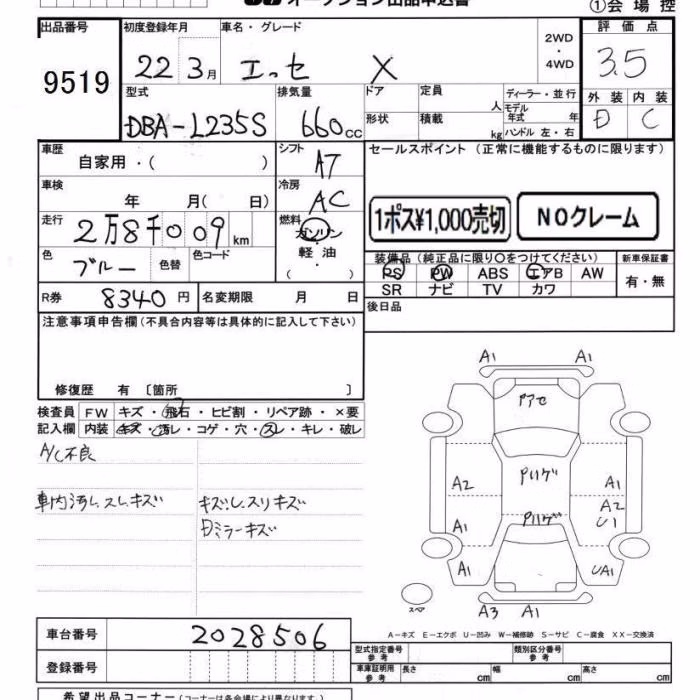 オークション出品申込書
①会場控
出品番号 初度登録年月 車名・グレード 2WD・4WD 評価点
9519 22 3月 エッセ X 3.5
型式 排気量 ドア 定員 人 ディーラー・並行 外装 内装
DBA-L235S 660cc 形状 積載 kg モデル年式 年 ハンドル 左・右 D C
車歴 自家用・( ) シフト AT セールスポイント (正常に機能するものに限ります)
車検 年 月( 日) 冷房 AC
1ポス¥1,000売切 NOクレーム
走行 2万8千009km 燃料 ガソリン 軽油 ( ・ )
色 ブルー 色替 色コード
装備品 (純正品に限り〇をつけてください) 新車保証書
PS PW ABS エアB AW 有・無
SR ナビ TV カワ
R券 8340円 名変期限 月 日 後日品
注意事項申告欄 (不具合内容等は具体的に記入して下さい)
修復歴 有 〔箇所 〕
検査員 FW キズ・飛石・ヒビ割・リペア跡・×要
記入欄 内装 キズ・汚レ・コゲ・穴・スレ・キレ・破レ
A/C不良
車内汚レ、スレ、キズ キズ、レ、スリキズ
Dミラーキズ
A1 A1
A2 A1
A2
A1 U1
A1 UA1
スペア A3 A1
A-キズ E-エクボ U-凹み W-補修跡 S-サビ C-腐食 XX-交換済
車台番号 2028506
型式指定番号 参考 類別区分番号 参考
登録番号 車庫証明用 参考 長さ cm 幅 cm 高さ cm
希望出品コーナー (コーナーは各会場により異なります)